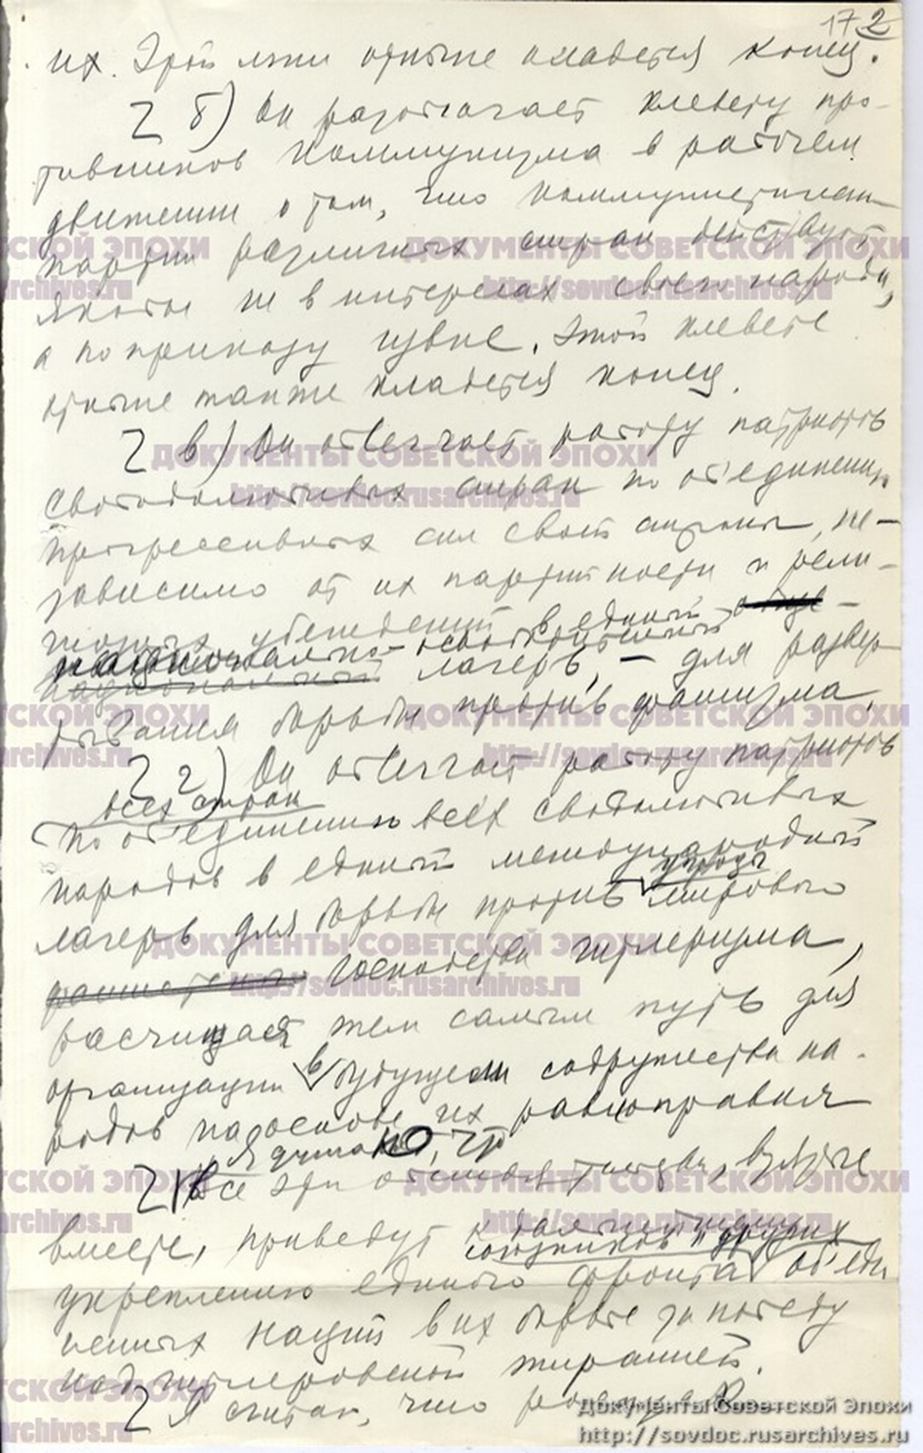 17 2
их. Этой лжи отныне кладется конец.
б) Он разоблачает клевету про-
тивников коммунизма в рабочем
движении о том, что коммунистические
партии различных стран действуют
якобы не в интересах своего народа,
а по приказу извне. Этой клевете
отныне также кладется конец.
в) Он облегчает работу патриотов
свободолюбивых стран по объединению
прогрессивных сил своей страны, не-
зависимо от их партийности и рели-
гиозных убеждений в единый
национально-освободительный
национальный лагерь, – для развер-
тывания борьбы против фашизма.
г) Он облегчает работу патриотов
всех стран
по объединению всех свободолюбивых
народов в единый международный
угрозы
лагерь для борьбы против мирового
господства гитлеризма,
расчищая тем самым путь для
организации в будущем содружества на-
родов на основе их равноправия
Я думаю, что
все эти обстоятельства, взятые
вместе, приведут к дальнейшему
союзников и других
укреплению единого фронта объеди
ненных наций в их борьбе за победу
над гитлеровской тиранией.
Я считаю, что
ДОКУМЕНТЫ СОВЕТСКОЙ ЭПОХИ
http://sovdoc.rusarchives.ru
Документы Советской Эпохи
http://sovdoc.rusarchives.ru